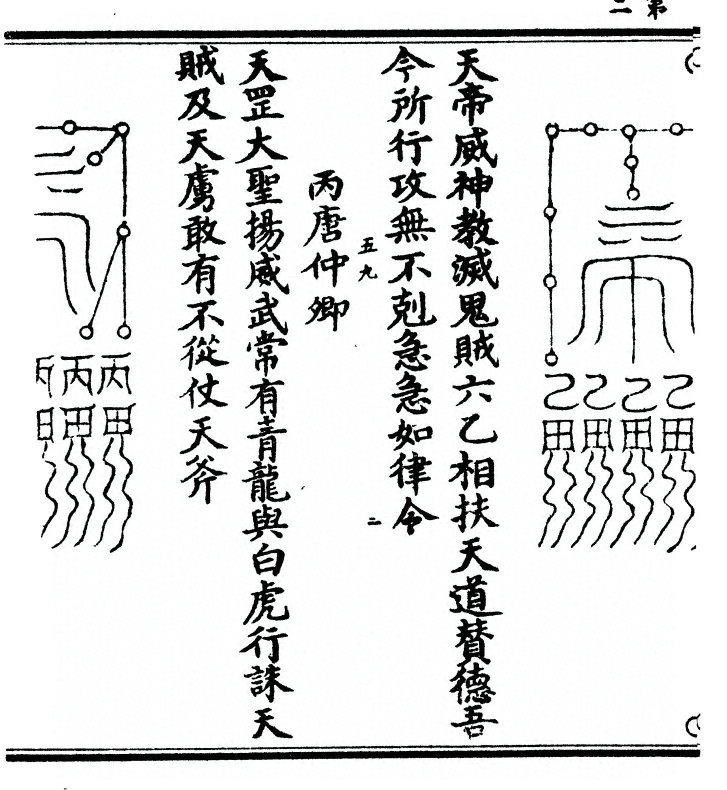 第二
乙乙乙乙
田田田田
天帝威神教滅鬼賊六乙相扶天道贊德吾
令所行攻無不剋急急如律令
五九
二
丙唐仲卿
天罡大聖揚威武常有青龍與白虎行誅天
賊及天虜敢有不從仗天斧
丙丙丙
田田田